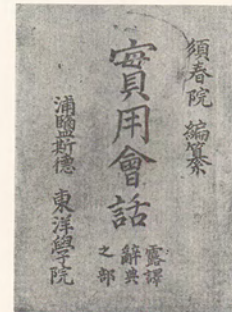 須春院 編纂
實用會話
露譯
辭典
之部
浦鹽斯德 東洋學院